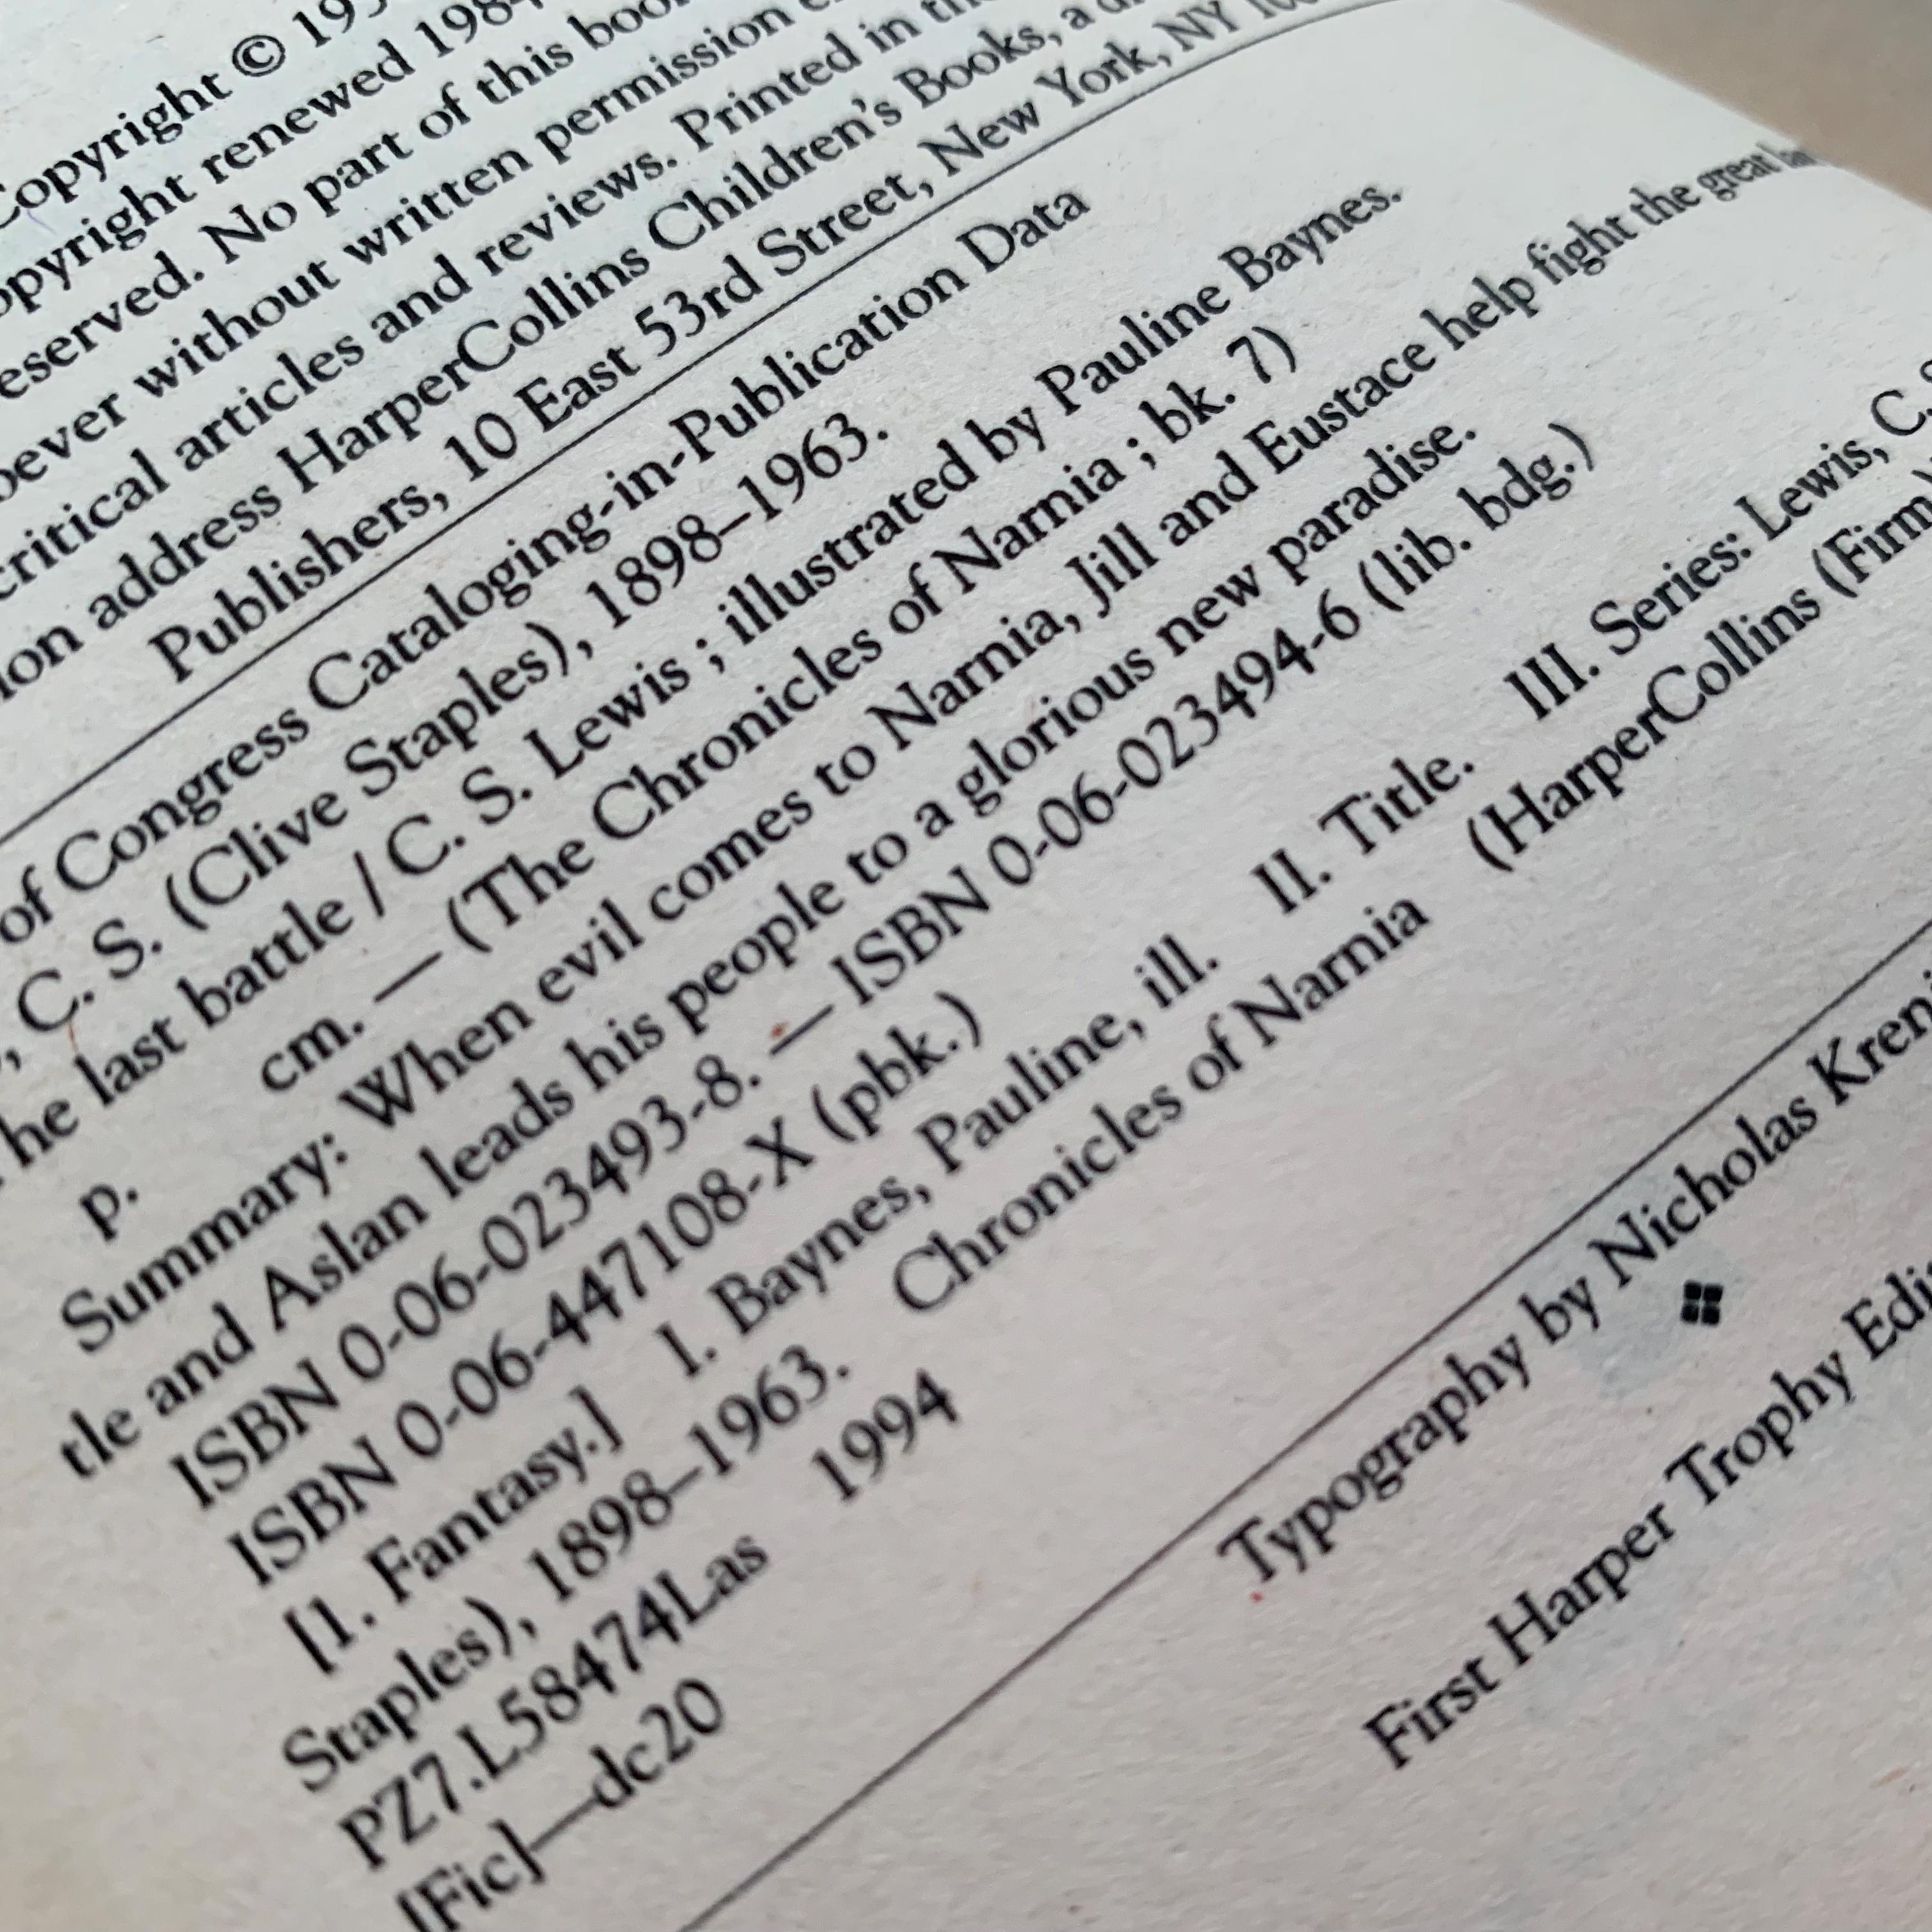 Copyright © 195
opyright renewed 1984
eserved. No part of this boo
oever without written permission e
critical articles and reviews. Printed in the
ion address HarperCollins Children's Books, a di
Publishers, 10 East 53rd Street, New York, NY 100
of Congress Cataloging-in-Publication Data
, C. S. (Clive Staples), 1898–1963.
he last battle / C. S. Lewis ; illustrated by Pauline Baynes.
p. cm. — (The Chronicles of Narnia ; bk. 7)
Summary: When evil comes to Narnia, Jill and Eustace help fight the great
tle and Aslan leads his people to a glorious new paradise.
ISBN 0-06-023493-8. — ISBN 0-06-023494-6 (lib. bdg.)
ISBN 0-06-447108-X (pbk.)
[1. Fantasy.] I. Baynes, Pauline, ill. II. Title. III. Series: Lewis, C. S
Staples), 1898–1963. Chronicles of Narnia (HarperCollins (Firm)
PZ7.L58474Las 1994
[Fic]—dc20
Typography by Nicholas Kreni
First Harper Trophy Edi